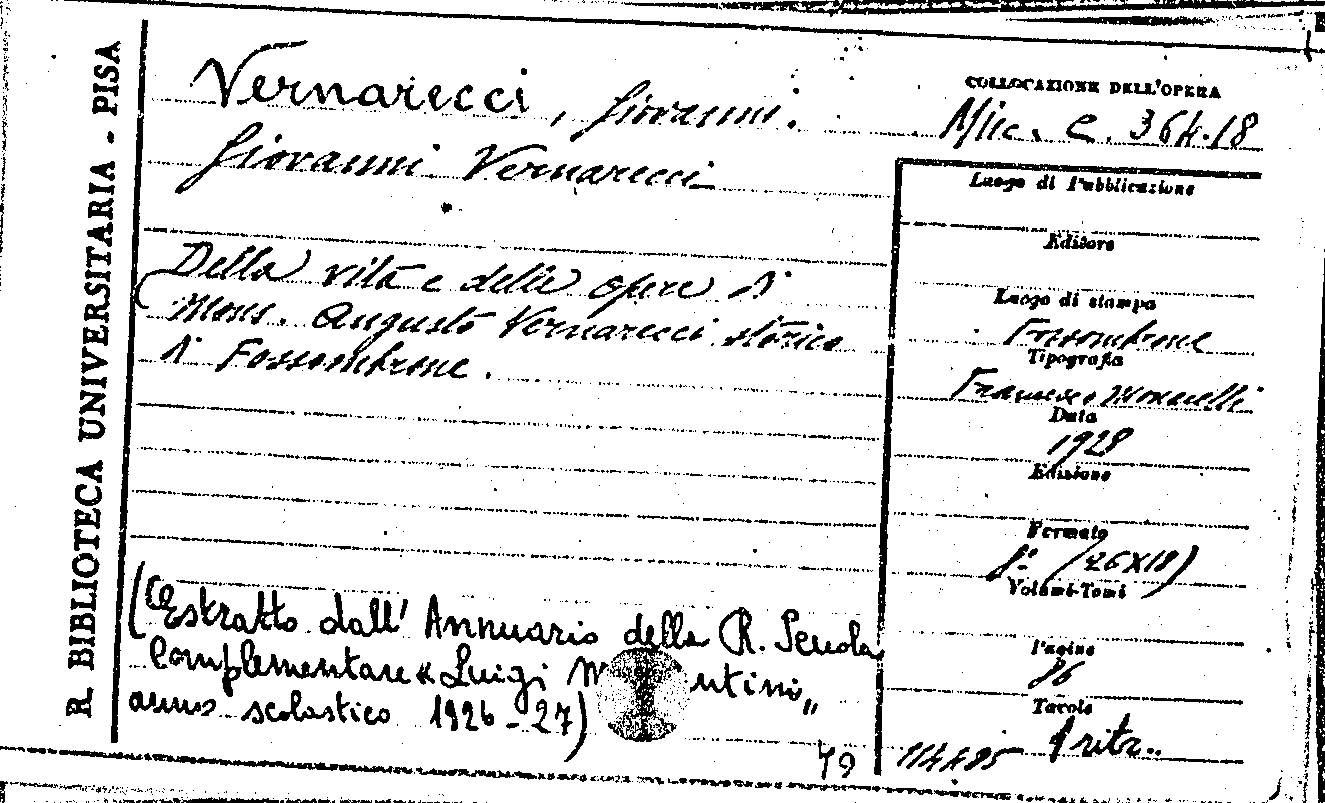 R. BIBLIOTECA UNIVERSITARIA - PISA
Vernarecci, Giovanni.
Giovanni Vernarecci
Della vita e delle opere di
Mons. Augusto Vernarecci storico
di Fossombrone.
(Estratto dall' Annuario della R. Scuola
Complementare « Luigi
anno scolastico 1926-27)
79
COLLOCAZIONE DELL'OPERA
Misc. C. 364.18
Luogo di Pubblicazione
Editore
Luogo di stampa
Fossombrone
Tipografia
Francesco Monacelli
Data
1928
Edizione
Formato
8º (26X18)
Volumi-Tomi
Pagine
86
Tavole
1 ritr.